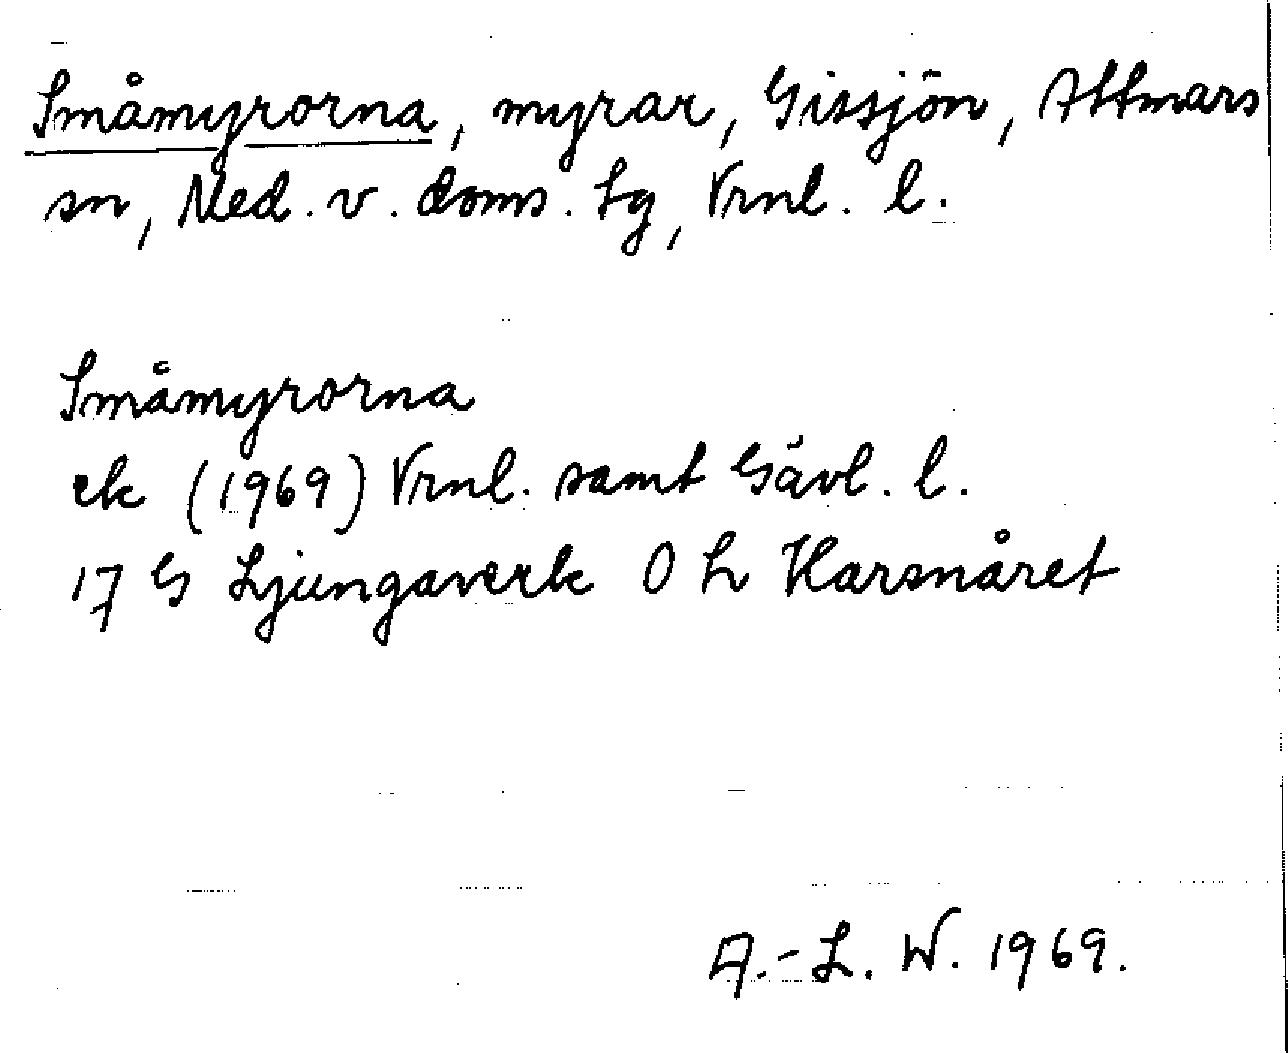 Småmyrorna, myrar, Gissjön, Attmars
sn, Med. v. doms. tg, Vrnl. l.
Småmyrorna
ek (1969) Vrnl. samt Gävl. l.
17 G Ljungaverk O h Karsnåret
A.-L. W. 1969.